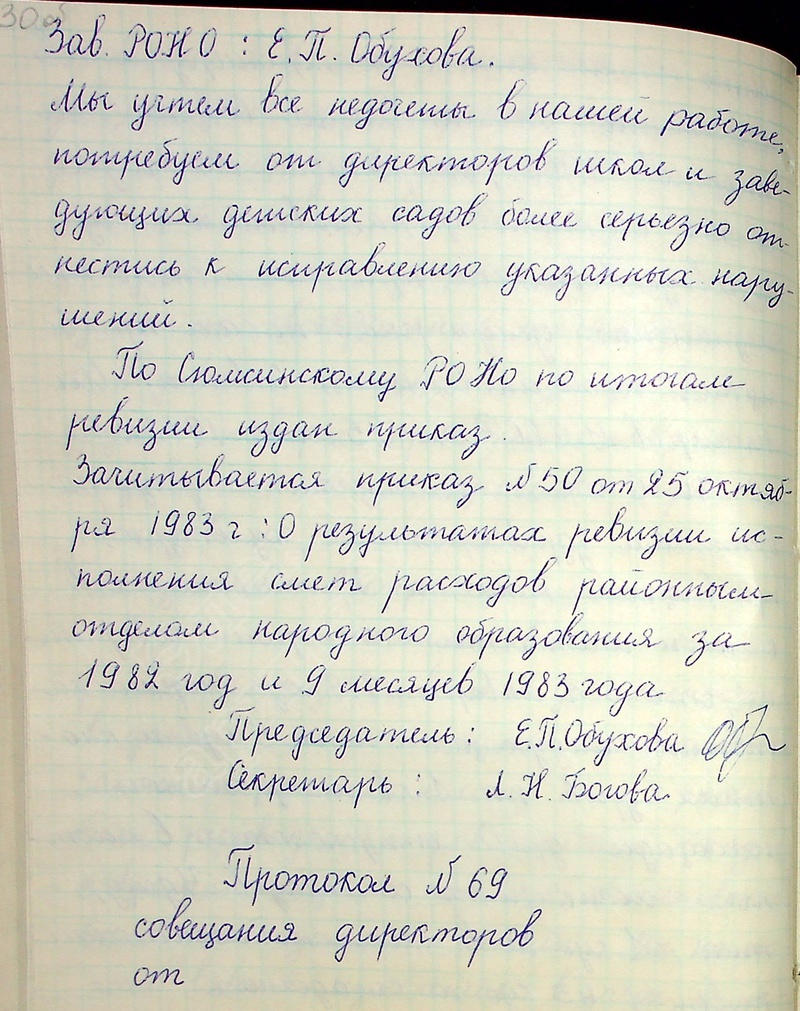 30об
Зав. РОНО : Е.П. Обухова.
Мы учтем все недочеты в нашей работе,
потребуем от директоров школ и заве-
дующих детских садов более серьезно от-
нестись к исправлению указанных нару-
шений.
По Сюмсинскому РОНо по итогам
ревизии издан приказ.
Зачитывается приказ N 50 от 25 октяб-
ря 1983 г : О результатах ревизии ис-
полнения смет расходов районным
отделом народного образования за
1982 год и 9 месяцев 1983 года
Председатель : Е.П.Обухова
Секретарь : Л. Н. Богова.
Протокол N 69
совещания директоров
от